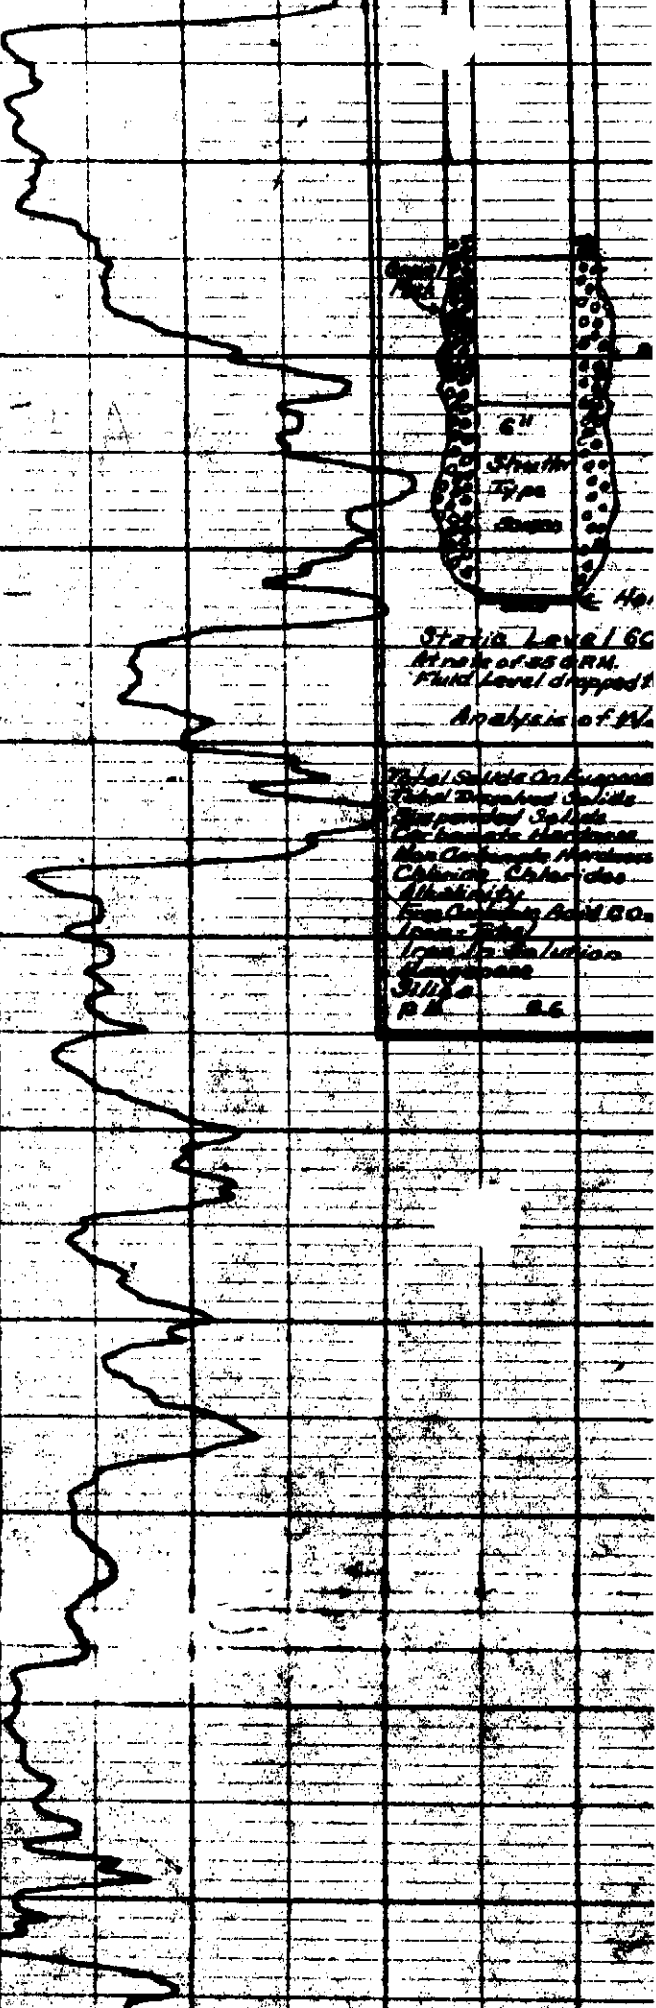 Gravel
Pack
6"
Strutter
Type
Screen
Static Level 60
At rate of 25 G.P.M.
Fluid Level dropped t
Analysis of Wa
Total Solids On Evapora
Total Dissolved Solids
Suspended Solids
Carbonate Hardness
Non Carbonate Hardness
Chlorine Chlorides
Alkalinity
Free Carbonic Acid CO2
Iron - Total
Iron In Solution
Manganese
Silica
pH 8.6